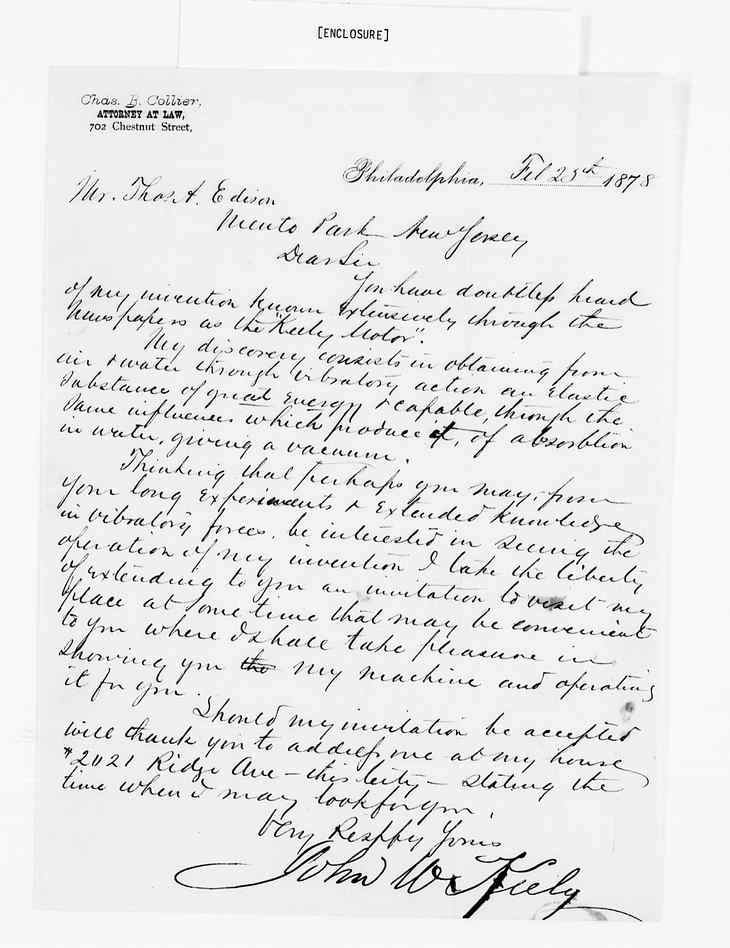 [ENCLOSURE]
Chas. B. Collier,
ATTORNEY AT LAW,
702 Chestnut Street,
Philadelphia, Feb 25th 1878
Mr. Thos A. Edison
Mento Park New Jersey
Dear Sir
You have doubtless heard
of my invention known extensively through the
Newspapers as the "Keely Motor".
My discovery consists in obtaining from
air & water through vibratory action an Elastic
Substance of great Energy & capable, through the
Same influences which produce it, of absorbtion
in water, giving a vacuum.
Thinking that perhaps you may, from
your long Experiments & Extended Knowledge
in vibratory forces, be interested in seeing the
operation of my invention I take the liberty
of extending to you an invitation to visit my
place at some time that may be convenient
to you where I shall take pleasure in
showing you the my machine and operating
it for you.
Should my invitation be accepted
will thank you to address me at my house
# 2021 Ridge Ave – this City – stating the
time when I may look for you.
Very Respfy Yours
John W Keely